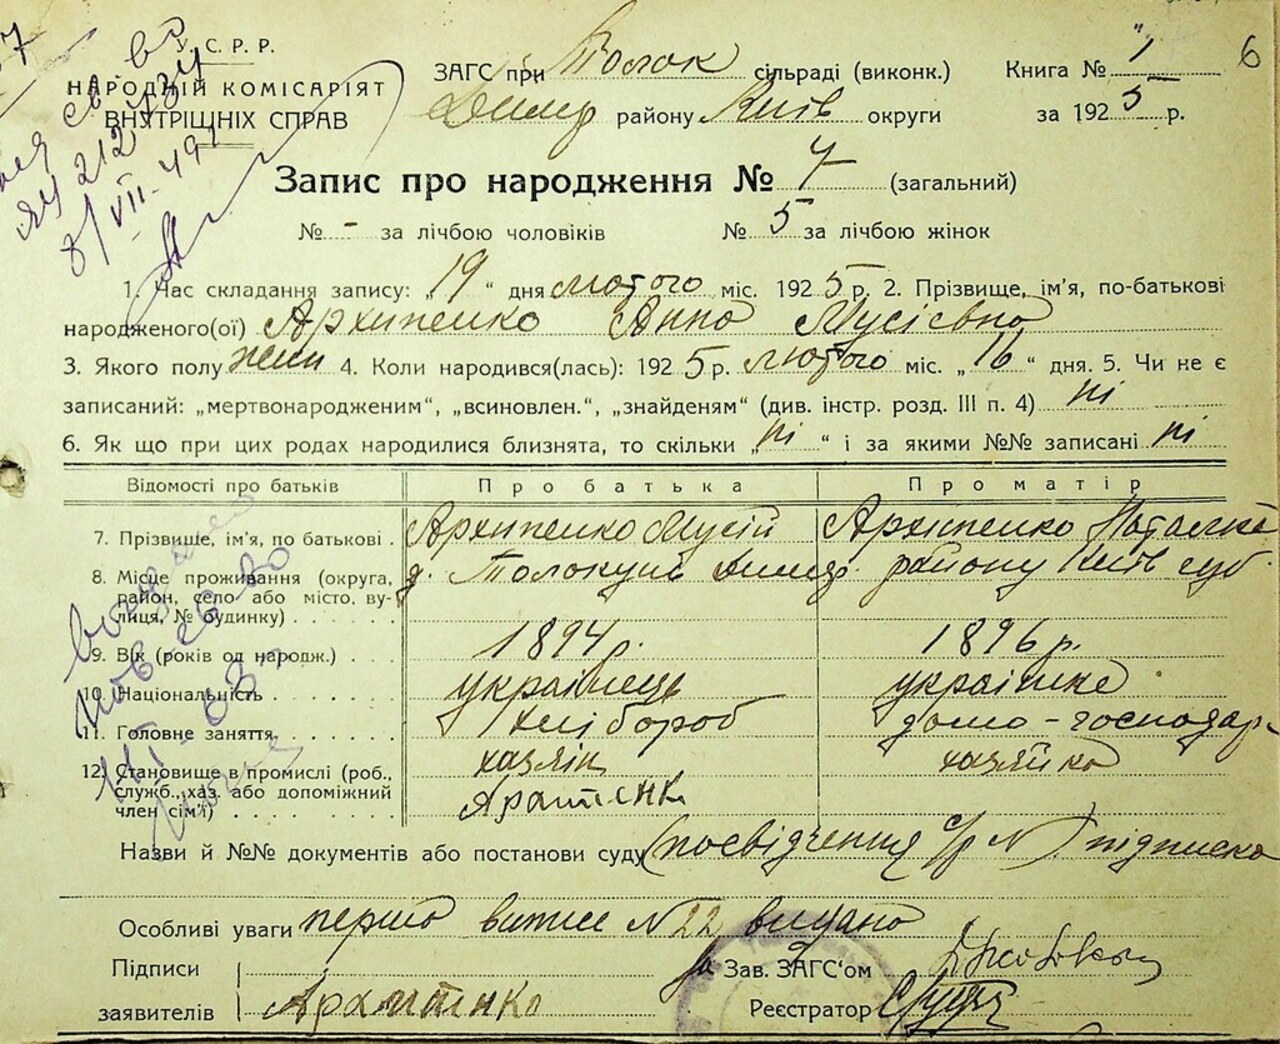 У. С. Р. Р.
НАРОДНІЙ КОМІСАРІЯТ
ВНУТРІШНІХ СПРАВ
ЗАГС при Толок сільраді (виконк.)
Димер району Київ округи
Книга № "1"
за 1925 р.
6
Запис про народження № 7 (загальний)
№ - за лічбою чоловіків № 5 за лічбою жінок
1. Час складання запису: „19“ дня лютого міс. 1925 р. 2. Прізвище, ім'я, по-батькові
народженого(ої) Архипенко Анна Мусієвна
3. Якого полу жін 4. Коли народився(лась): 1925 р. лютого міс. „16“ дня. 5. Чи не є
записаний: „мертвонародженим“, „всиновлен.“, „знайденям“ (див. інстр. розд. III п. 4) ні
6. Як що при цих родах народилися близнята, то скільки „ні“ і за якими №№ записані ні
Відомості про батьків Про батька Про матір
7. Прізвище, ім'я, по батькові . Архипенко Мусій Архипенко Наталка
8. Місце проживання (округа, район, село або місто, вулиця, № будинку) . . . . . . д. Толокунь Димер. району Київ губ.
9. Вік (років од народж.) . . . 1894 р. 1896 р.
10. Національність . . . . . . українець українка
11. Головне заняття. . . . . . . хлібороб домо-господар
12. Становище в промислі (роб., служб., хаз. або допоміжний член сім'ї) . . . . . . . . хазяін хазяйка
Назви й №№ документів або постанови суду (посвідчення с/р №) підписка
Особливі уваги перша випис № 22 видано
Підписи
заявителів Архипенко
За Зав. ЗАГС'ом
Реєстратор